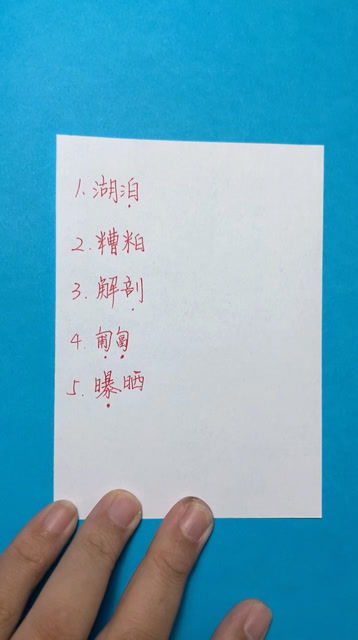 1. 湖泊
2. 糟粕
3. 解剖
4. 匍匐
5. 曝晒